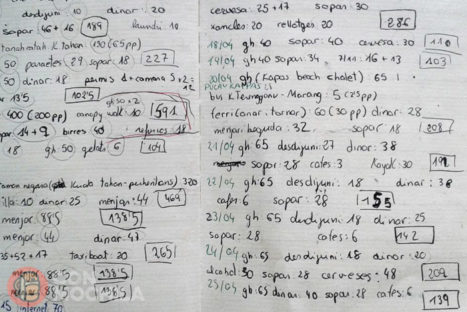 desdijuni: 10 dinar: 20
sopar: 46 + 16 189
tanahratah K tahan: 130 (65pp)
50 parades 29 sopar: 18 227
50 dinar: 18 permis d + camara 5 x 2 = 12
13'5 102'5
400 (200 pp) canopy walk: 10 gh 50 x 2 591
14 + 9 birres 40 refrescs 18
18 gh 50 gelats 6 104
320
10 dinar: 25 menjar: 44 469
menjar 88'5 138'5
menjar 44 dinar: 47
35 + 52 + 17 taxi boat: 20 265
menjar 88'5 138'5
menjar: 88'5 138'5
internet 70
cervesa: 25 + 17 sopar: 30
xancles: 20 rellotges: 20 286
18/04 gh 40 sopar: 40 cervesa: 30 110
19/04 gh 40 sopar: 34 7/11: 16 + 13 103
20/04 gh (Kapas beach chalet) 65
PULAU KAPAS
bus K Terengganu - Marang: 5 (2'5 pp)
ferri (anar i tornar): 60 (30 pp) dinar: 28
menjar beguda: 32 sopar 18 208
21/04 gh 65 desdijuni: 27 dinar: 38
sopar: 28 cafes: 3 Kayak: 30 191
22/04 gh: 65 desdijuni: 18 dinar: 38
cafes: 6 sopar: 28 155
23/04 gh 65 desdijuni: 18 dinar: 25
sopar: 28 cafes: 6 142
24/04 gh: 65 desdijuni: 18 dinar: 20
alcohol: 30 sopar: 28 cerveses: 48 209
25/04 gh: 65 dinar: 40 sopar: 28 cafes: 6 139